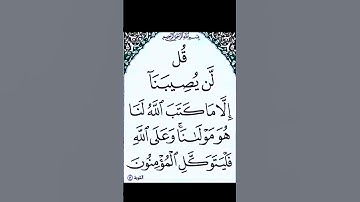 بسم الله الرحمن الرحيم
قُل
لَّن يُصِيبَنَآ
إِلَّا مَا كَتَبَ ٱللَّهُ لَنَا
هُوَ مَوْلَىٰنَا ۚ وَعَلَى ٱللَّهِ
فَلْيَتَوَكَّلِ ٱلْمُؤْمِنُونَ
التوبة